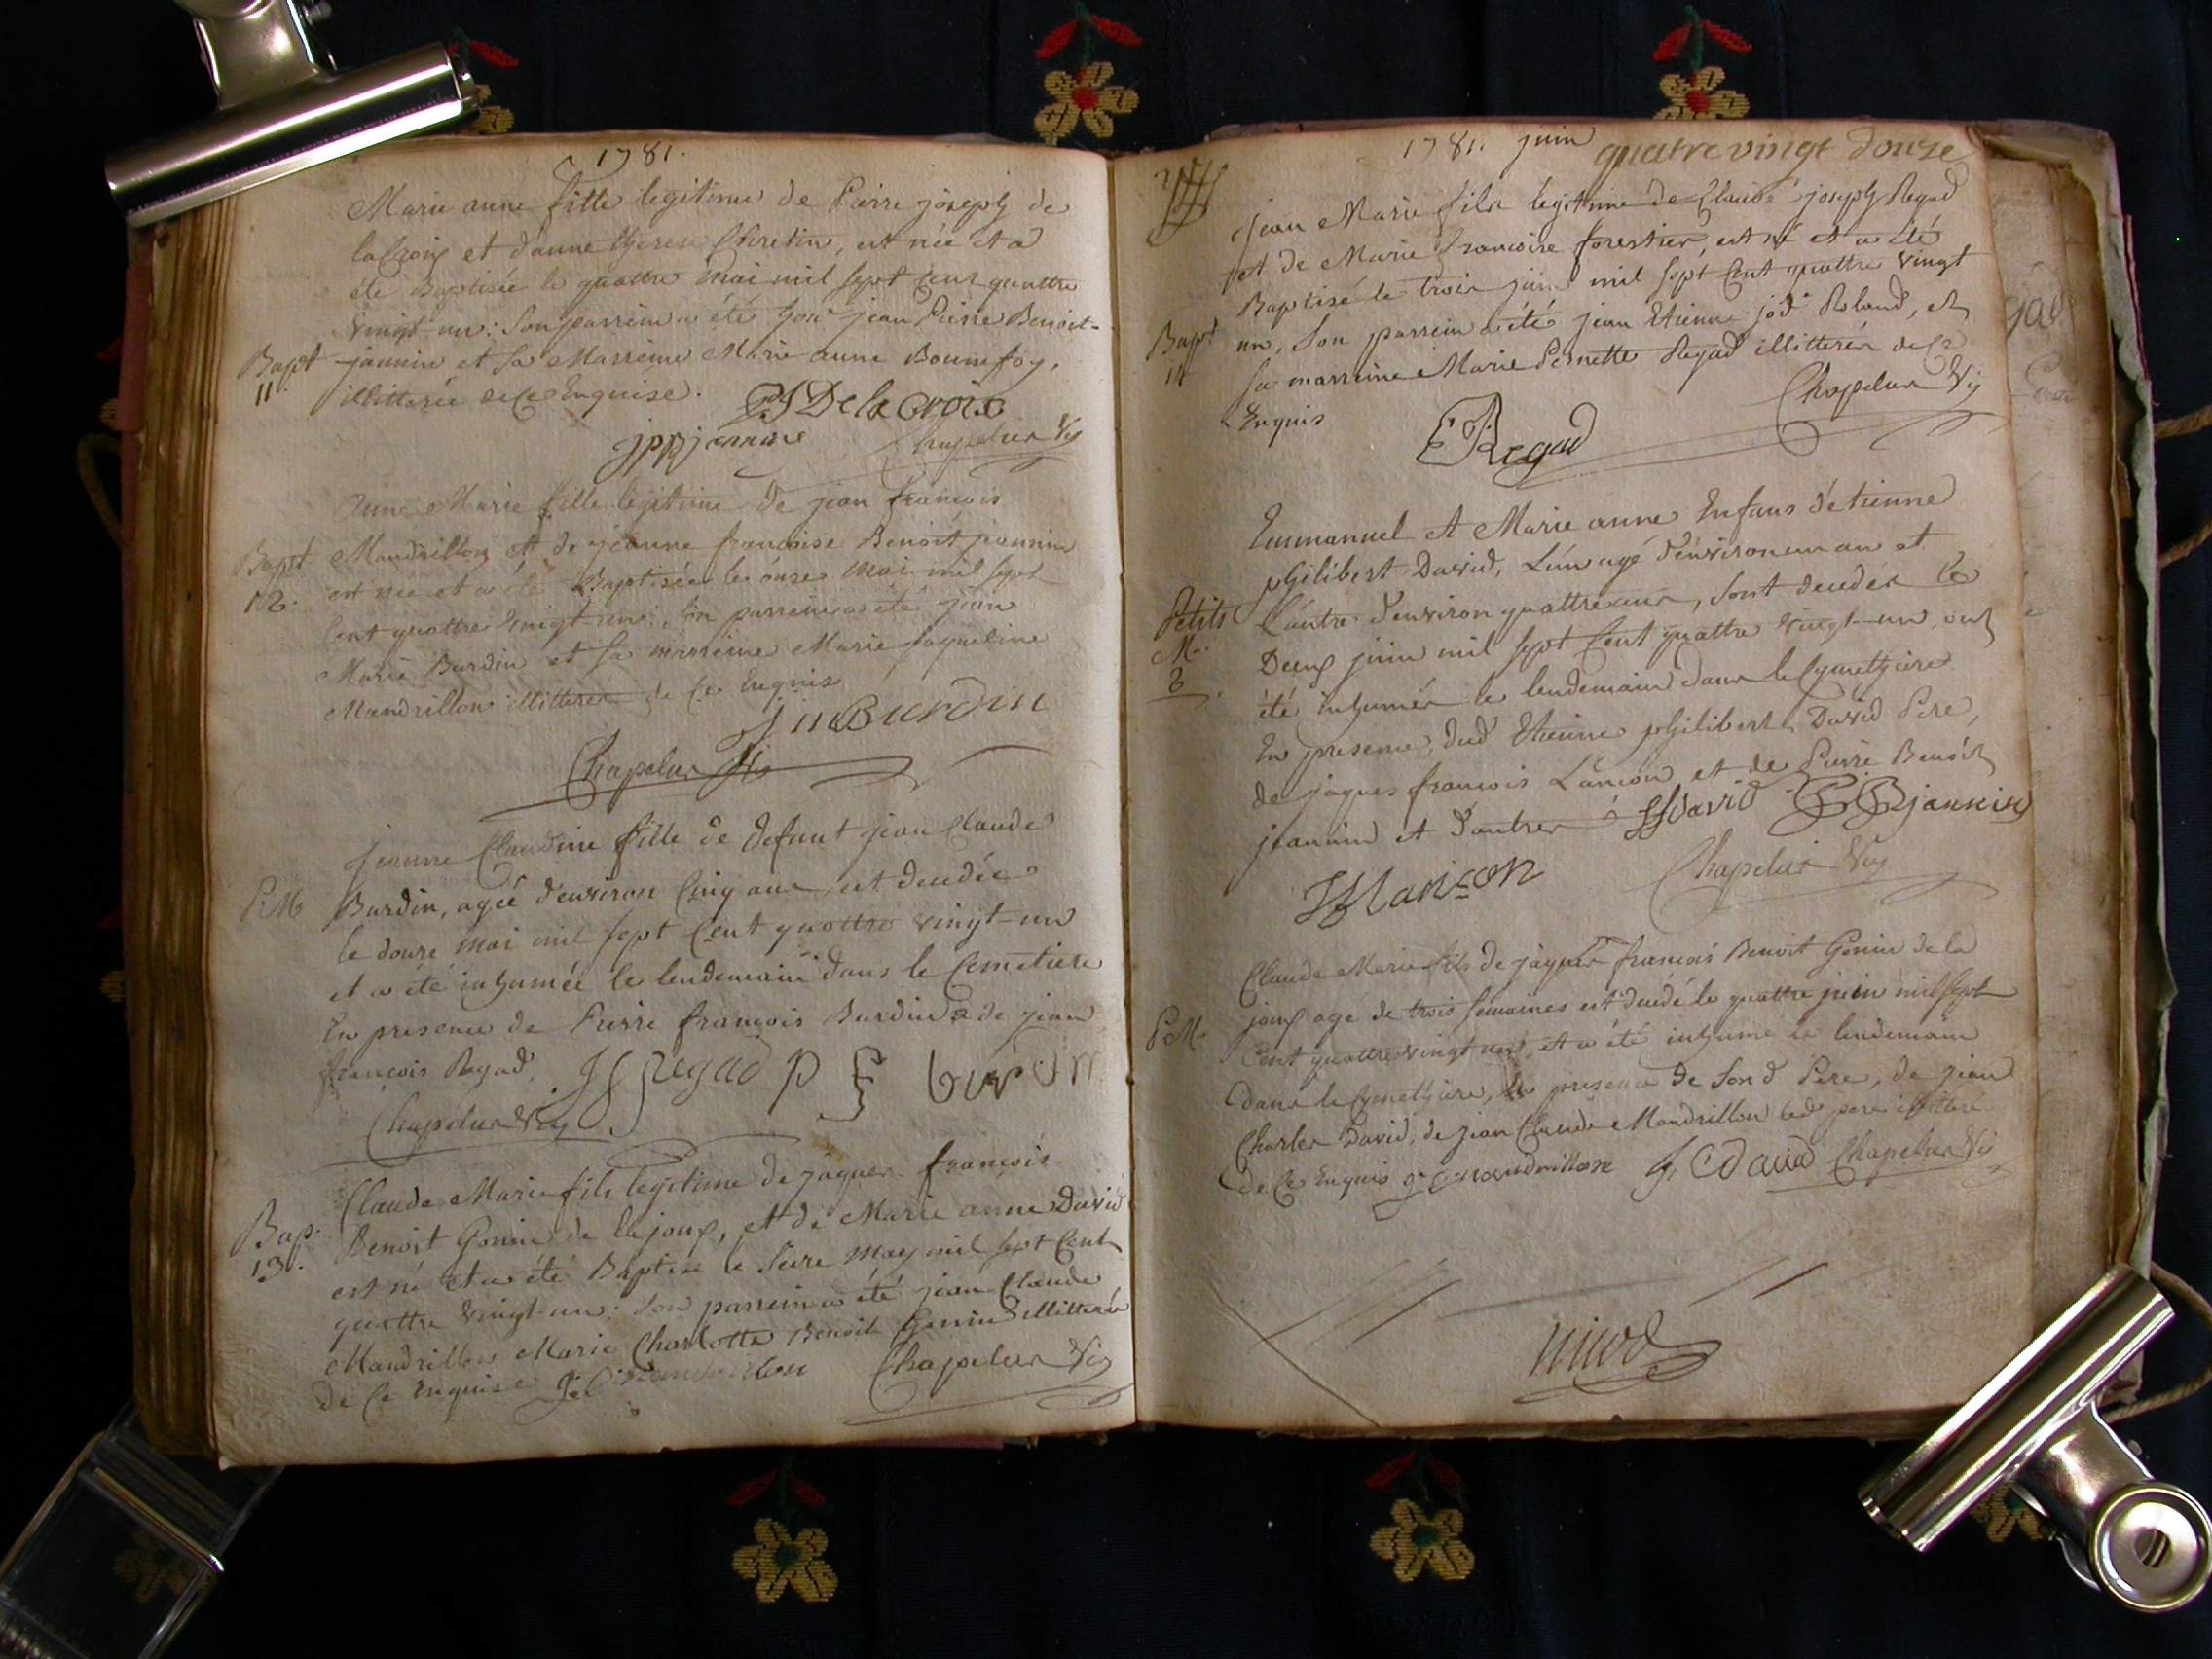 1781.
Marie anne fille legitime de Pierre joseph de
lacroix et d'anne therese Chretin, est née et a
été Baptisée le quattre mai mil sept cent quattre
vingt-un: Son parrein a été jean Pierre Benoit-
Bapt jannin et sa Marreine Marie anne Bonnefoy,
11. illitterée de ce Enquise. PJ Delacroix
jppjannin Chapelur Vic
Anne Marie fille legitime de jean françois
Bapt Mandrillon et de jeanne françoise Benoit jeannin
12. est née et a été Baptisée le onze mai mil sept
Cent quattre vingt un: son parrein a été jean
Marie Burdin et sa marreine Marie jaqueline
Mandrillon illitterée de ce Enquis
jm Burdin
Chapelur Vic
Jeanne Claudine fille de defunt jean Claude
P.M. Burdin, agée d'environ Cinq ans, est decedée
le douze mai mil sept Cent quattre vingt-un
et a été inhumée le lendemain dans le Cemetiere
En presence de Pierre françois Burdin & de jean
françois Regad. jf regad p f burdin
Chapelur Vic
Claude Marie fils legitime de jaques françois
Bap. Benoit Gonin de la joux, et de Marie anne David
13. est né et a été Baptisé le seize may mil sept Cent
quattre vingt-un: son parrein a été jean Claude
Mandrillon Marie Charlotte Benoit Gonin illitterée
de ce Enquise j.C. mandrillon Chapelur Vic
1781. juin quatre vingt douze
jean Marie fils legitime de Claude joseph Regad
et de Marie françoise forestier, est né et a été
Baptisé le trois juin mil sept Cent quattre vingt
Bapt un, Son parrein a été jean Etienne jos Roland, et
14 sa marreine Marie Pernette Regad illitterés de ce
Enquis Chapelur Vic
Regad
Emmanuel et Marie anne Enfans d'etienne
philibert David, L'un agé d'environ un an et
Petits L'autre d'environ quattre ans, sont decedés le
M. Deux juin mil sept Cent quattre vingt-un, ont
2 été inhumés le lendemain dans le Cymethiere
En presence, dud Etienne philibert David Pere,
de jaques françois Lançon, et de Pierre Benoit
jeannin et d'autres david jannin
lançon Chapelur Vic
Claude Marie fils de jaques françois Benoit Gonin de la
P.M. joux agé de trois semaines est decedé le quattre juin mil sept
Cent quattre vingt un, et a été inhumé le lendemain
dans le Cymethiere, en presence de son d Pere, de jean
Charles David, de jean Claude Mandrillon led pere illitteré
de ce Enquis j C mandrillon j. C david Chapelur Vic